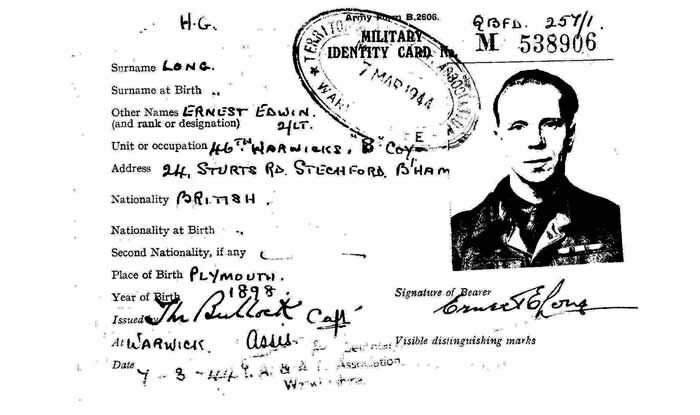 H.G.
Army Form B.2606.
QBFD. 257/1.
MILITARY
IDENTITY CARD No.
M 538906
TERRITO ASSOCIATION
7 MAR 1944
WAR
Surname LONG.
Surname at Birth ..
Other Names ERNEST EDWIN.
(and rank or designation) 2/LT.
Unit or occupation 46TH WARWICKS, "B" COY
Address 24, STURTS RD. STECHFORD. B'HAM
Nationality BRITISH.
Nationality at Birth ..
Second Nationality, if any
Place of Birth PLYMOUTH.
Year of Birth 1898.
Issued by Bullock Capt
At WARWICK. Assis
Date 7-3-44 T. A. & A. F. Association.
Warwickshire.
Signature of Bearer
Ernest E Long
Visible distinguishing marks